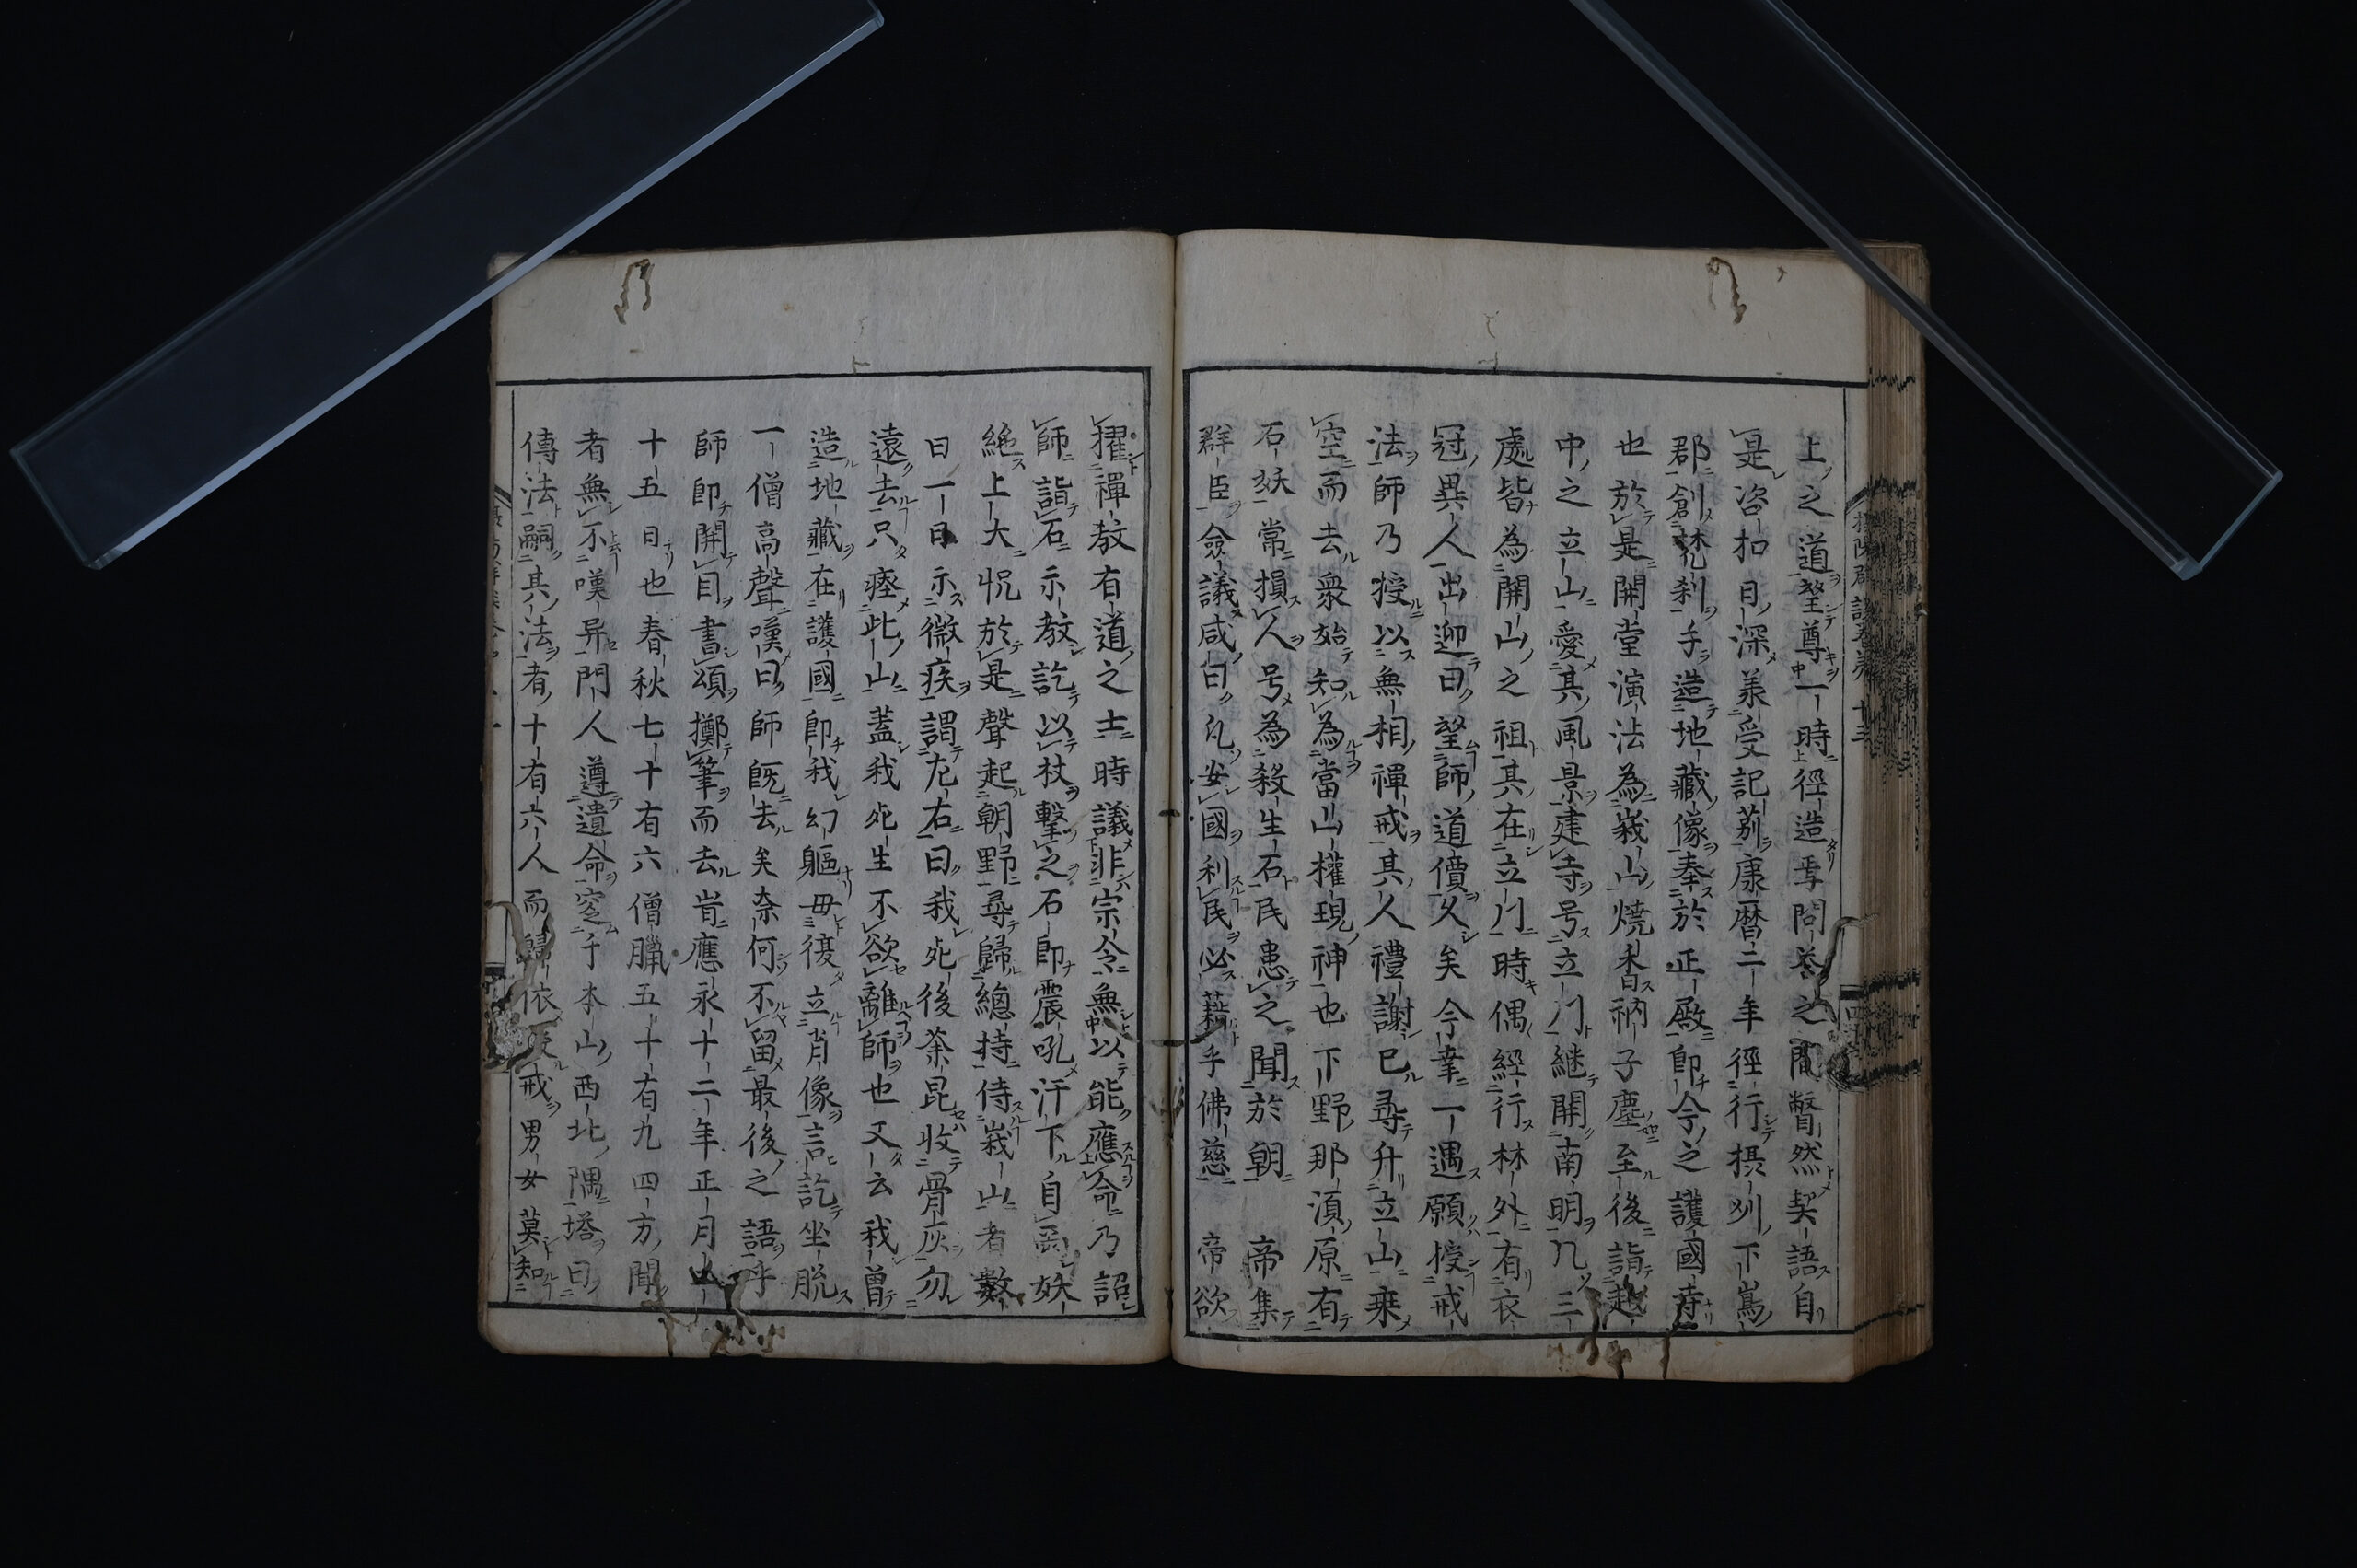 上之道望尊一時徑造焉問答之間瞥然契語自
是咨扣日深羕受記莂康曆二年徑行摂州下嶌
郡創林化刹手造地藏像奉於正殿即今之護國寺
也於是開堂演法為峩山燒香衲子塵至後詣越
中之立山愛其風景建寺号立川継開南明凡三
處皆為開山之祖其在立川時偶經行林外有衣
冠異人出迎曰望師道價久矣今幸一遇願授戒
法師乃授以無相禪戒其人禮謝已尋升立山乗
空而去衆始知為當山權現神也下野那湏原有
石妖常損人号為殺生石民患之聞於朝 帝集
群臣僉議咸曰凡安國利民必藉乎佛慈 帝欲
擢禪教有道之士時議非宗令無以能應命乃詔
師詣石示教訖以杖撃之石即震吼汗下自 妖
絶上大悦於是聲起朝野尋歸總持侍峩山者數
日一日示微疾謂左右曰我死後荼毘收骨灰勿
遠去只瘞此山蓋我死生不欲離師也又云我曽
造地藏在護國即我幻軀毋復立肖像言訖坐脱
一僧高聲嘆曰師既去矣奈何不留最後之語乎
師即開目書頌擲筆而去旹應永十二年正月
十五日也春秋七十有六僧臘五十有九四方聞
者無不嘆异門人遵遺命窆于本山西北隅塔曰
傳法嗣其法者十有六人而歸依 戒男女莫知